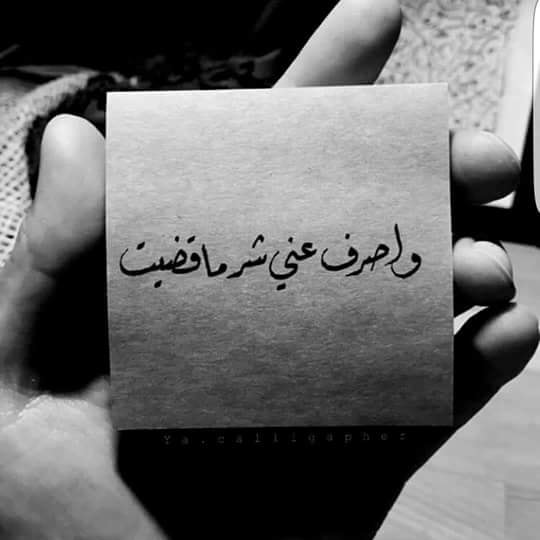 واصرف عني شر ما قضيت
Ya.calligapher